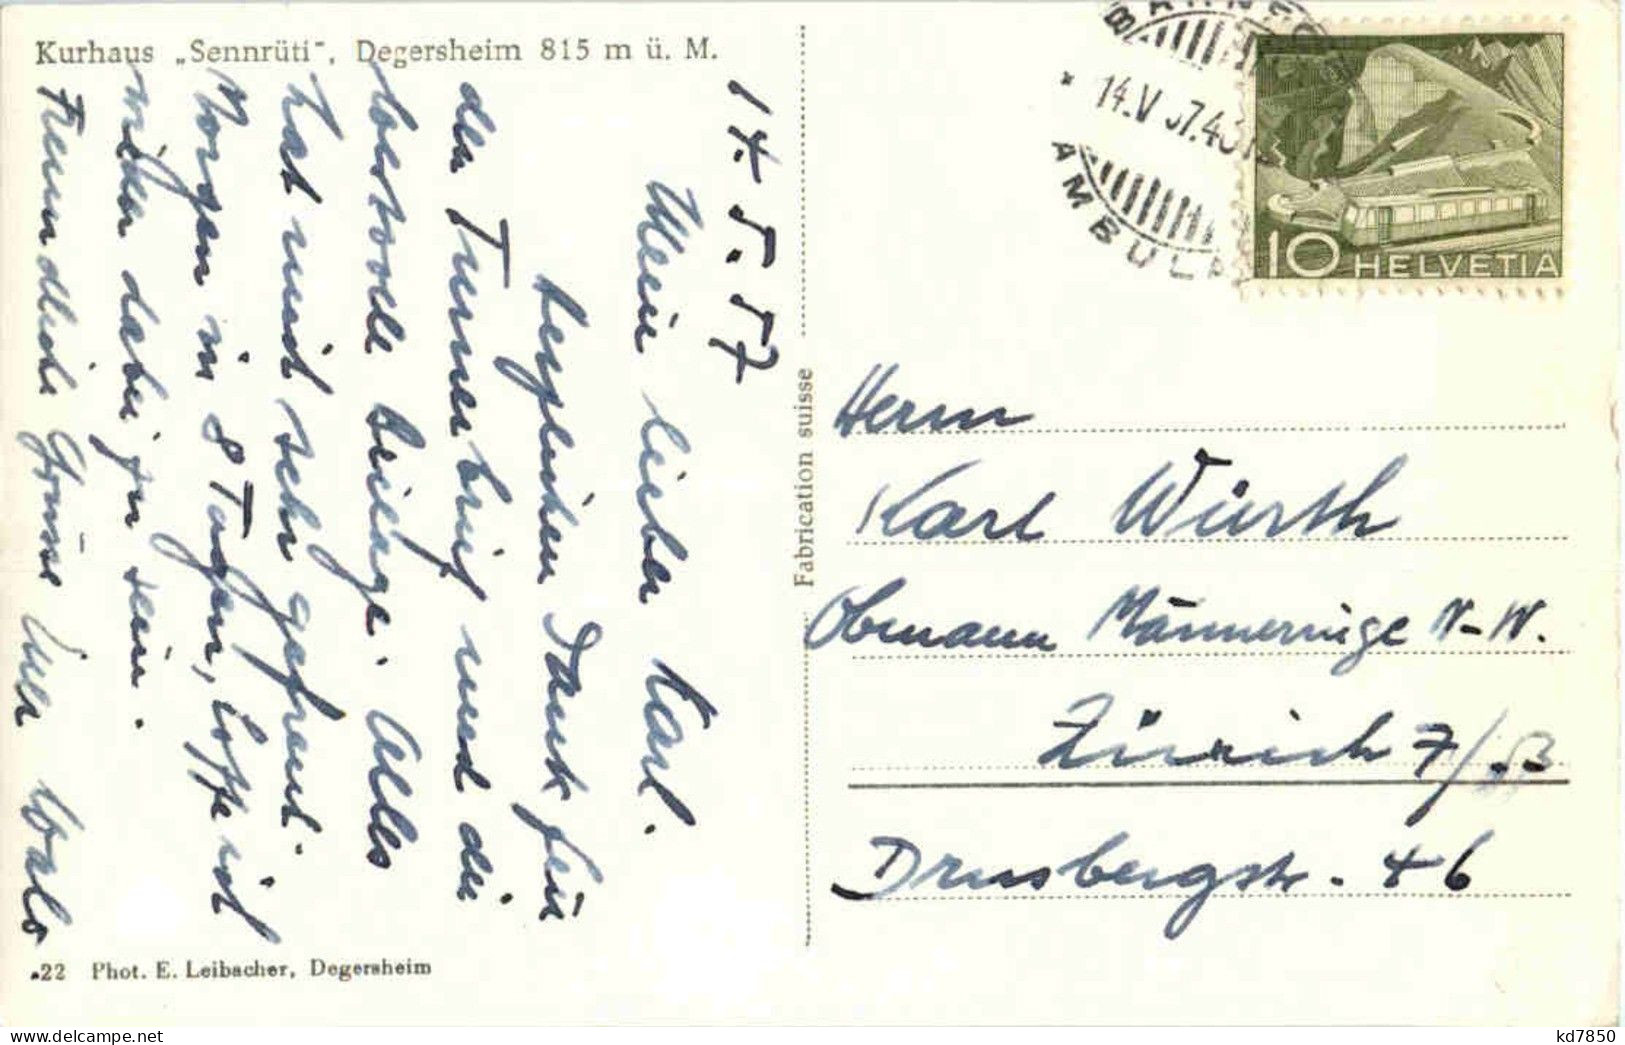 Kurhaus „Sennrüti", Degersheim 815 m ü. M.
14. 5. 57
Mein lieber Karl.
herzlichen Dank für
den Turnerbrief und die
wertvolle Beilage. Alles
hat mich sehr gefreut.
Morgen in 8 Tagen, hoffe ich
wieder dabei zu sein.
Freundliche Grüsse Euer
22 Phot. E. Leibacher, Degersheim
Fabrication suisse
14.V
AMBULA
10 HELVETIA
Herrn
Karl Würth
Obmann Männerriege N-W.
Zürich 7/53
Drusbergstr. 46
kd7850